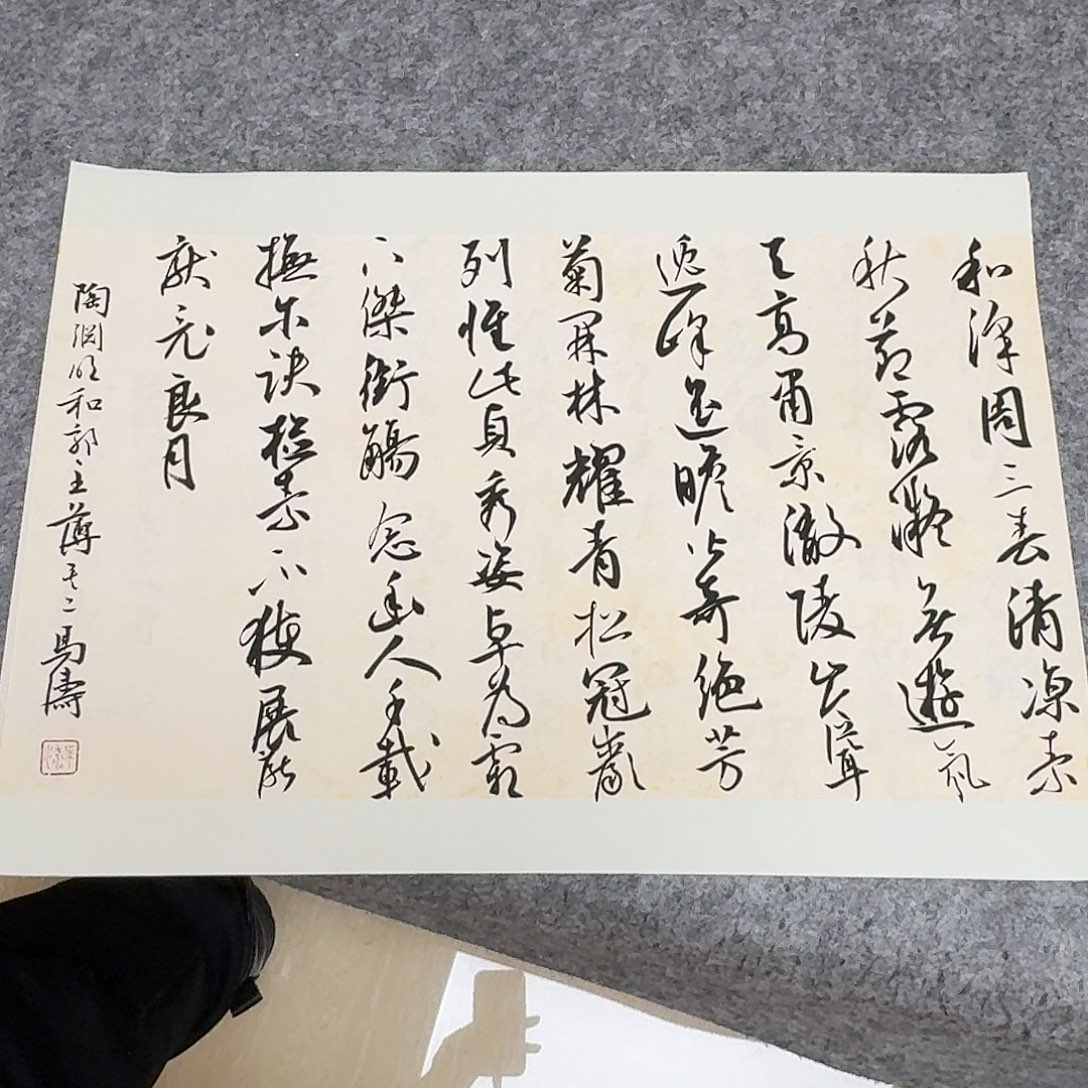 和澤周三春清凉素
秋節露凝無遊氛
天高肅景澈陵岑聳
逸峰遥瞻皆奇絶芳
菊開林耀青松冠巖
列懷此貞秀姿卓為霜
下傑銜觴念幽人千載
撫尔訣檢素不獲展厭
厭竟良月
陶淵明和郭主薄其二 馬濤